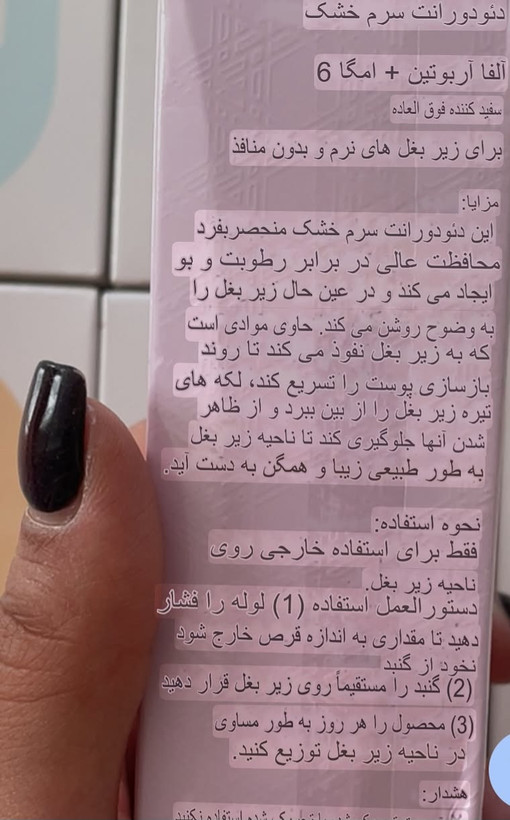 دئودورانت سرم خشک
آلفا آربوتین + امگا 6
سفید کننده فوق العاده
برای زیر بغل های نرم و بدون منافذ
مزایا:
این دئودورانت سرم خشک منحصربفرد
محافظت عالی در برابر رطوبت و بو
ایجاد می کند و در عین حال زیر بغل را
به وضوح روشن می کند. حاوی موادی است
که به زیر بغل نفوذ می کند تا روند
بازسازی پوست را تسریع کند، لکه های
تیره زیر بغل را از بین ببرد و از ظاهر
شدن آنها جلوگیری کند تا ناحیه زیر بغل
به طور طبیعی زیبا و همگن به دست آید.
نحوه استفاده:
فقط برای استفاده خارجی روی
ناحیه زیر بغل.
دستور العمل استفاده (1) لوله را فشار
دهید تا مقداری به اندازه قرص خارج شود
نخود از گنبد
(2) گنبد را مستقیماً روی زیر بغل قرار دهید
(3) محصول را هر روز به طور مساوی
در ناحیه زیر بغل توزیع کنید.
هشدار: